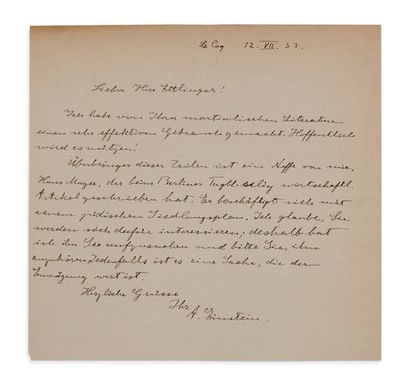 Le Coq 12. VII. 33.
Lieber Herr Ettlinger!
Ich habe von Ihrer martialischen Literatur
einen sehr effektiven Gebrauch gemacht. Hoffentlich
wird es nützen!
Überbringer dieser Zeilen ist ein Neffe von mir,
Hans Mayer, der beim Berliner Tagbl. wirtschaftl.
Artikel geschrieben hat. Er beschäftigt sich mit
einem jüdischen Siedlungsplan. Ich glaube, Sie
werden sich dafür interessieren; deshalb bat
ich ihn Sie aufzusuchen und bitte Sie, ihn
anzuhören. Jedenfalls ist es eine Sache, die der
Erwägung wert ist.
Herzliche Grüsse
Ihr
A. Einstein.